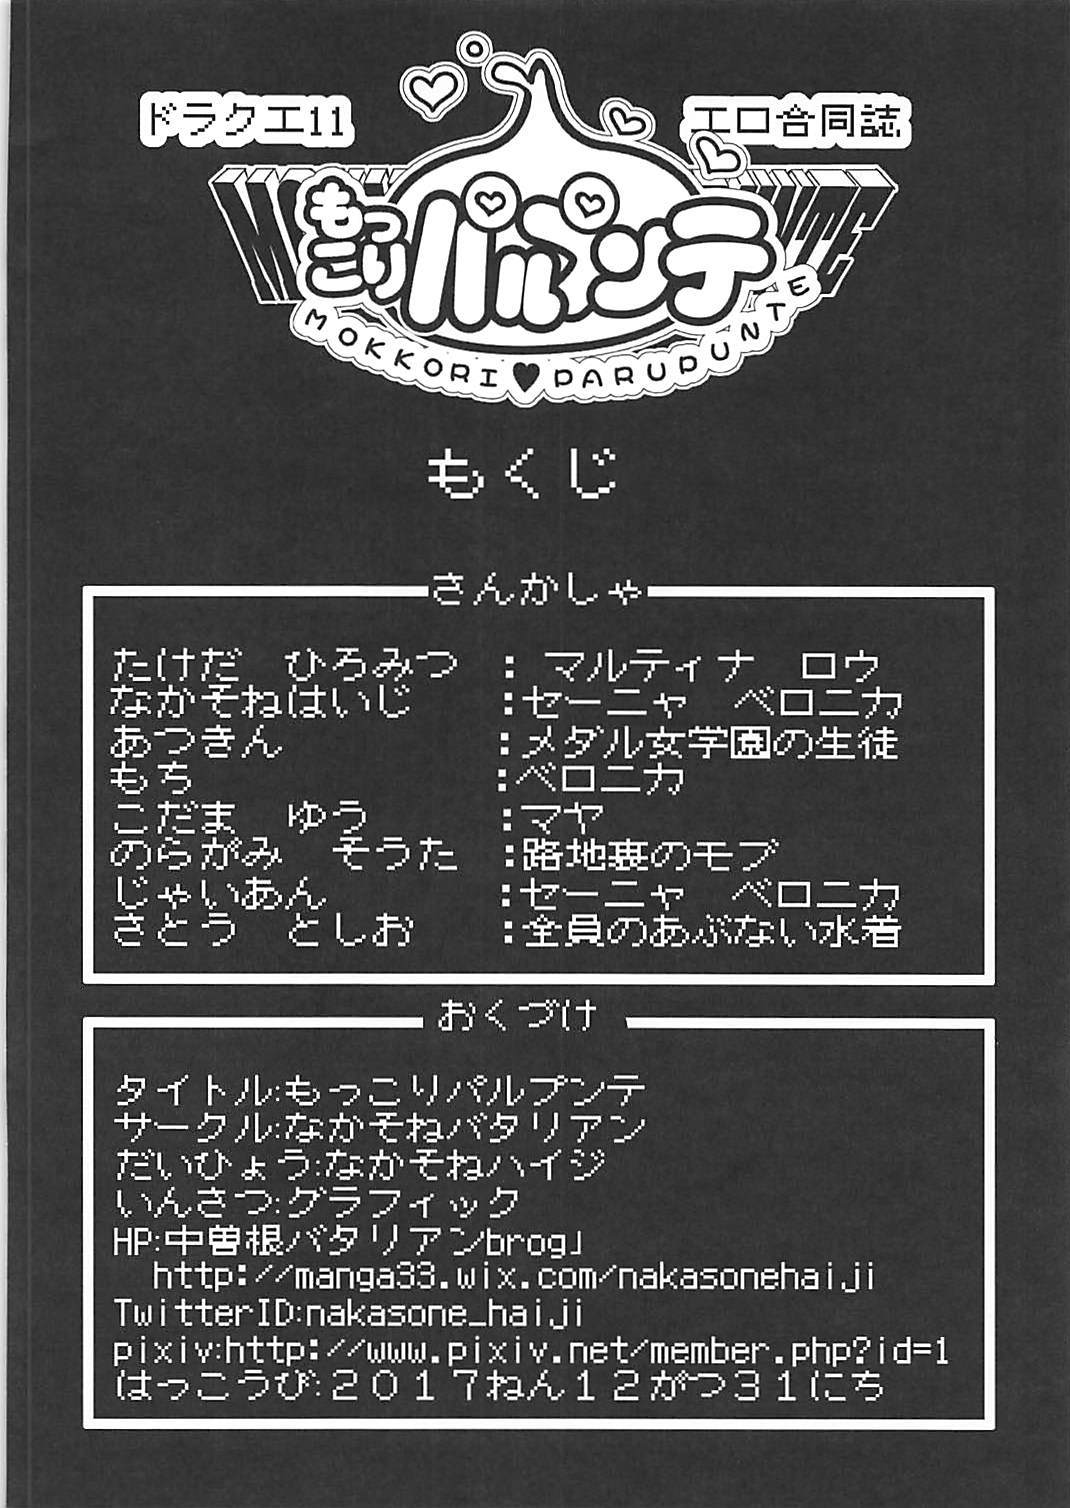 ドラクエ11
エロ合同誌
もっこりパルプンテ
MOKKORI♥PARUPUNTE
もくじ
さんかしゃ
たけだ　ひろみつ　： マルティナ　ロウ
なかそねはいじ　：セーニャ　ベロニカ
あつきん　：メダル女学園の生徒
もち　：ベロニカ
こだま　ゆう　：マヤ
のらがみ　そうた　：路地裏のモブ
じゃいあん　：セーニャ　ベロニカ
さとう　としお　：全員のあぶない水着
おくづけ
タイトル:もっこりパルプンテ
サークル:なかそねバタリアン
だいひょう:なかそねハイジ
いんさつ:グラフィック
HP:中曽根バタリアンbrog」
http://manga33.wix.com/nakasonehaiji
TwitterID:nakasone_haiji
pixiv:http://www.pixiv.net/member.php?id=1
はっこうび:２０１７ねん１２がつ３１にち